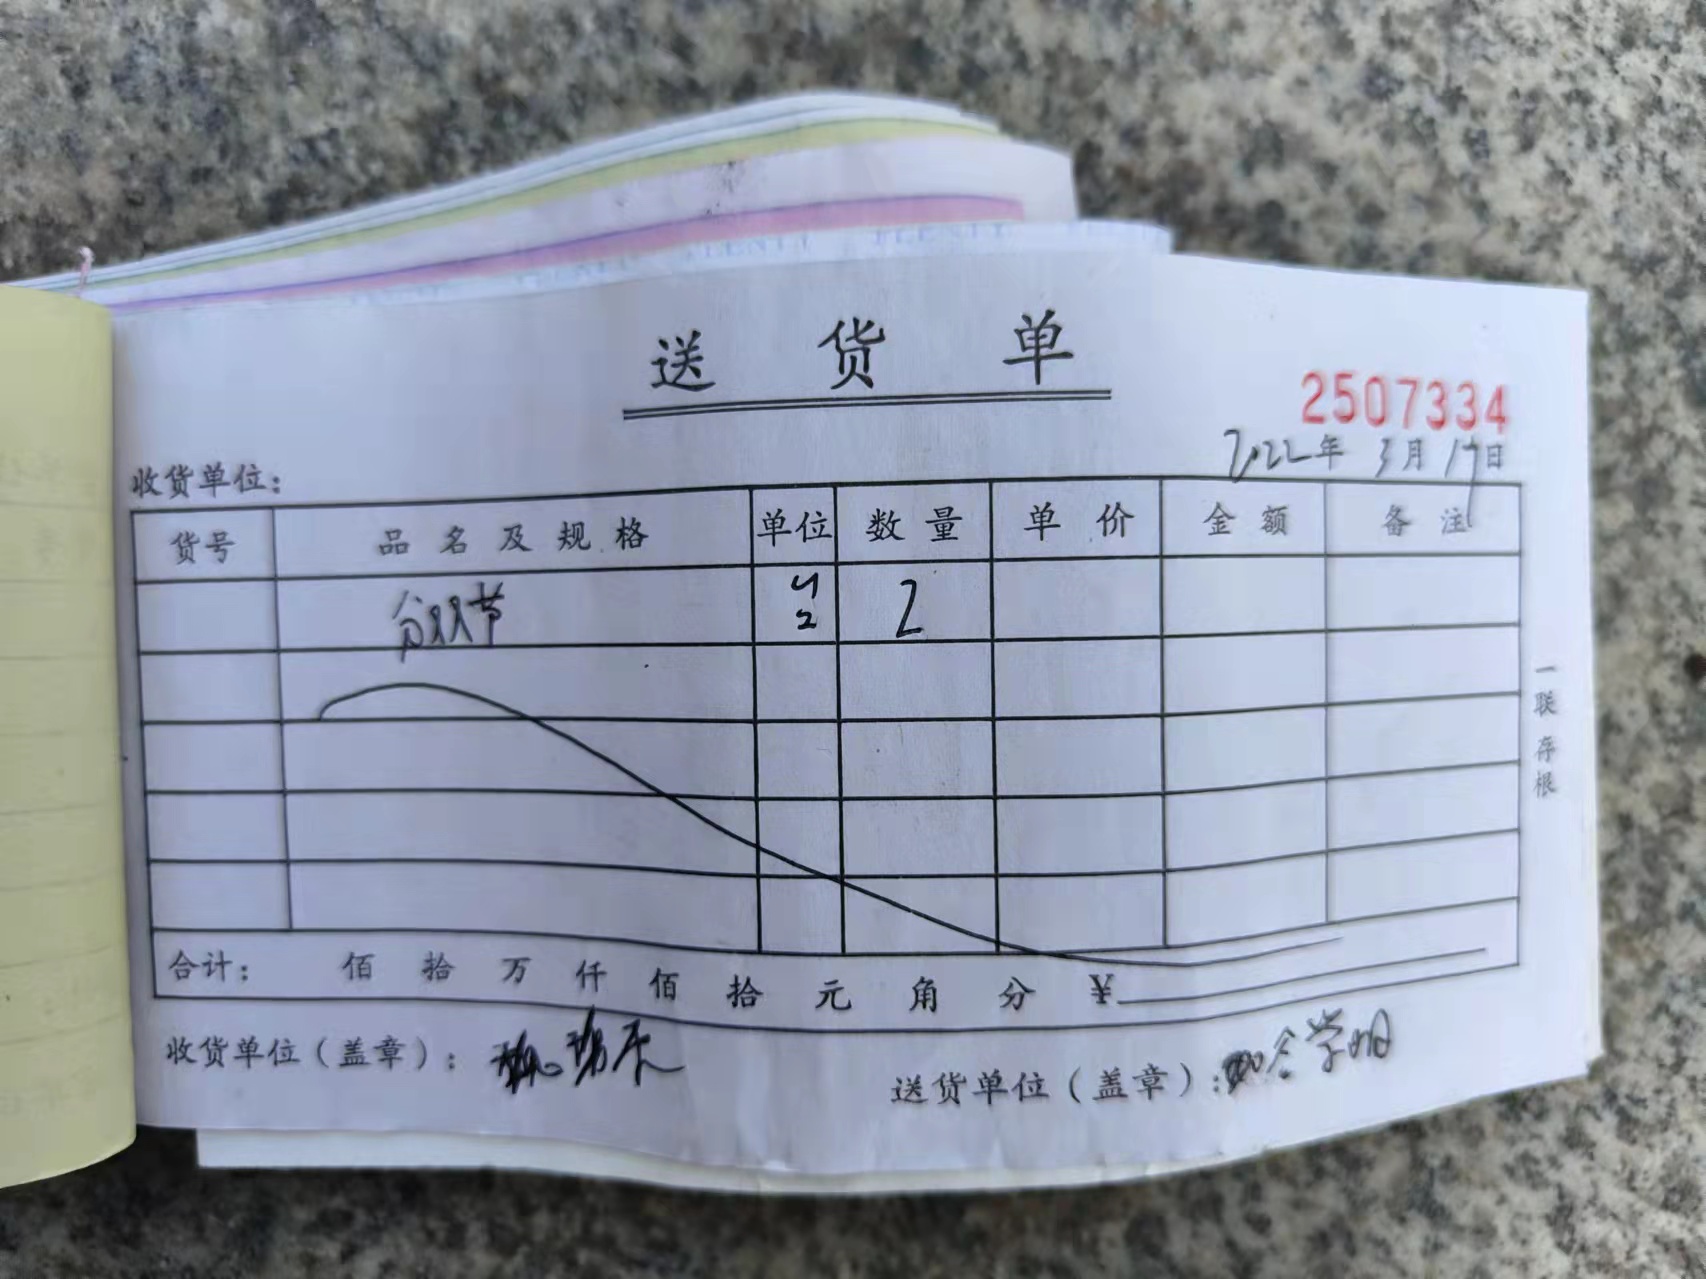 送货单
2507334
2022年 3月 17日
收货单位:
货号 品名及规格 单位 数量 单价 金额 备注
2
一联存根
合计: 佰 拾 万 仟 佰 拾 元 角 分 ¥
收货单位(盖章):
送货单位(盖章):